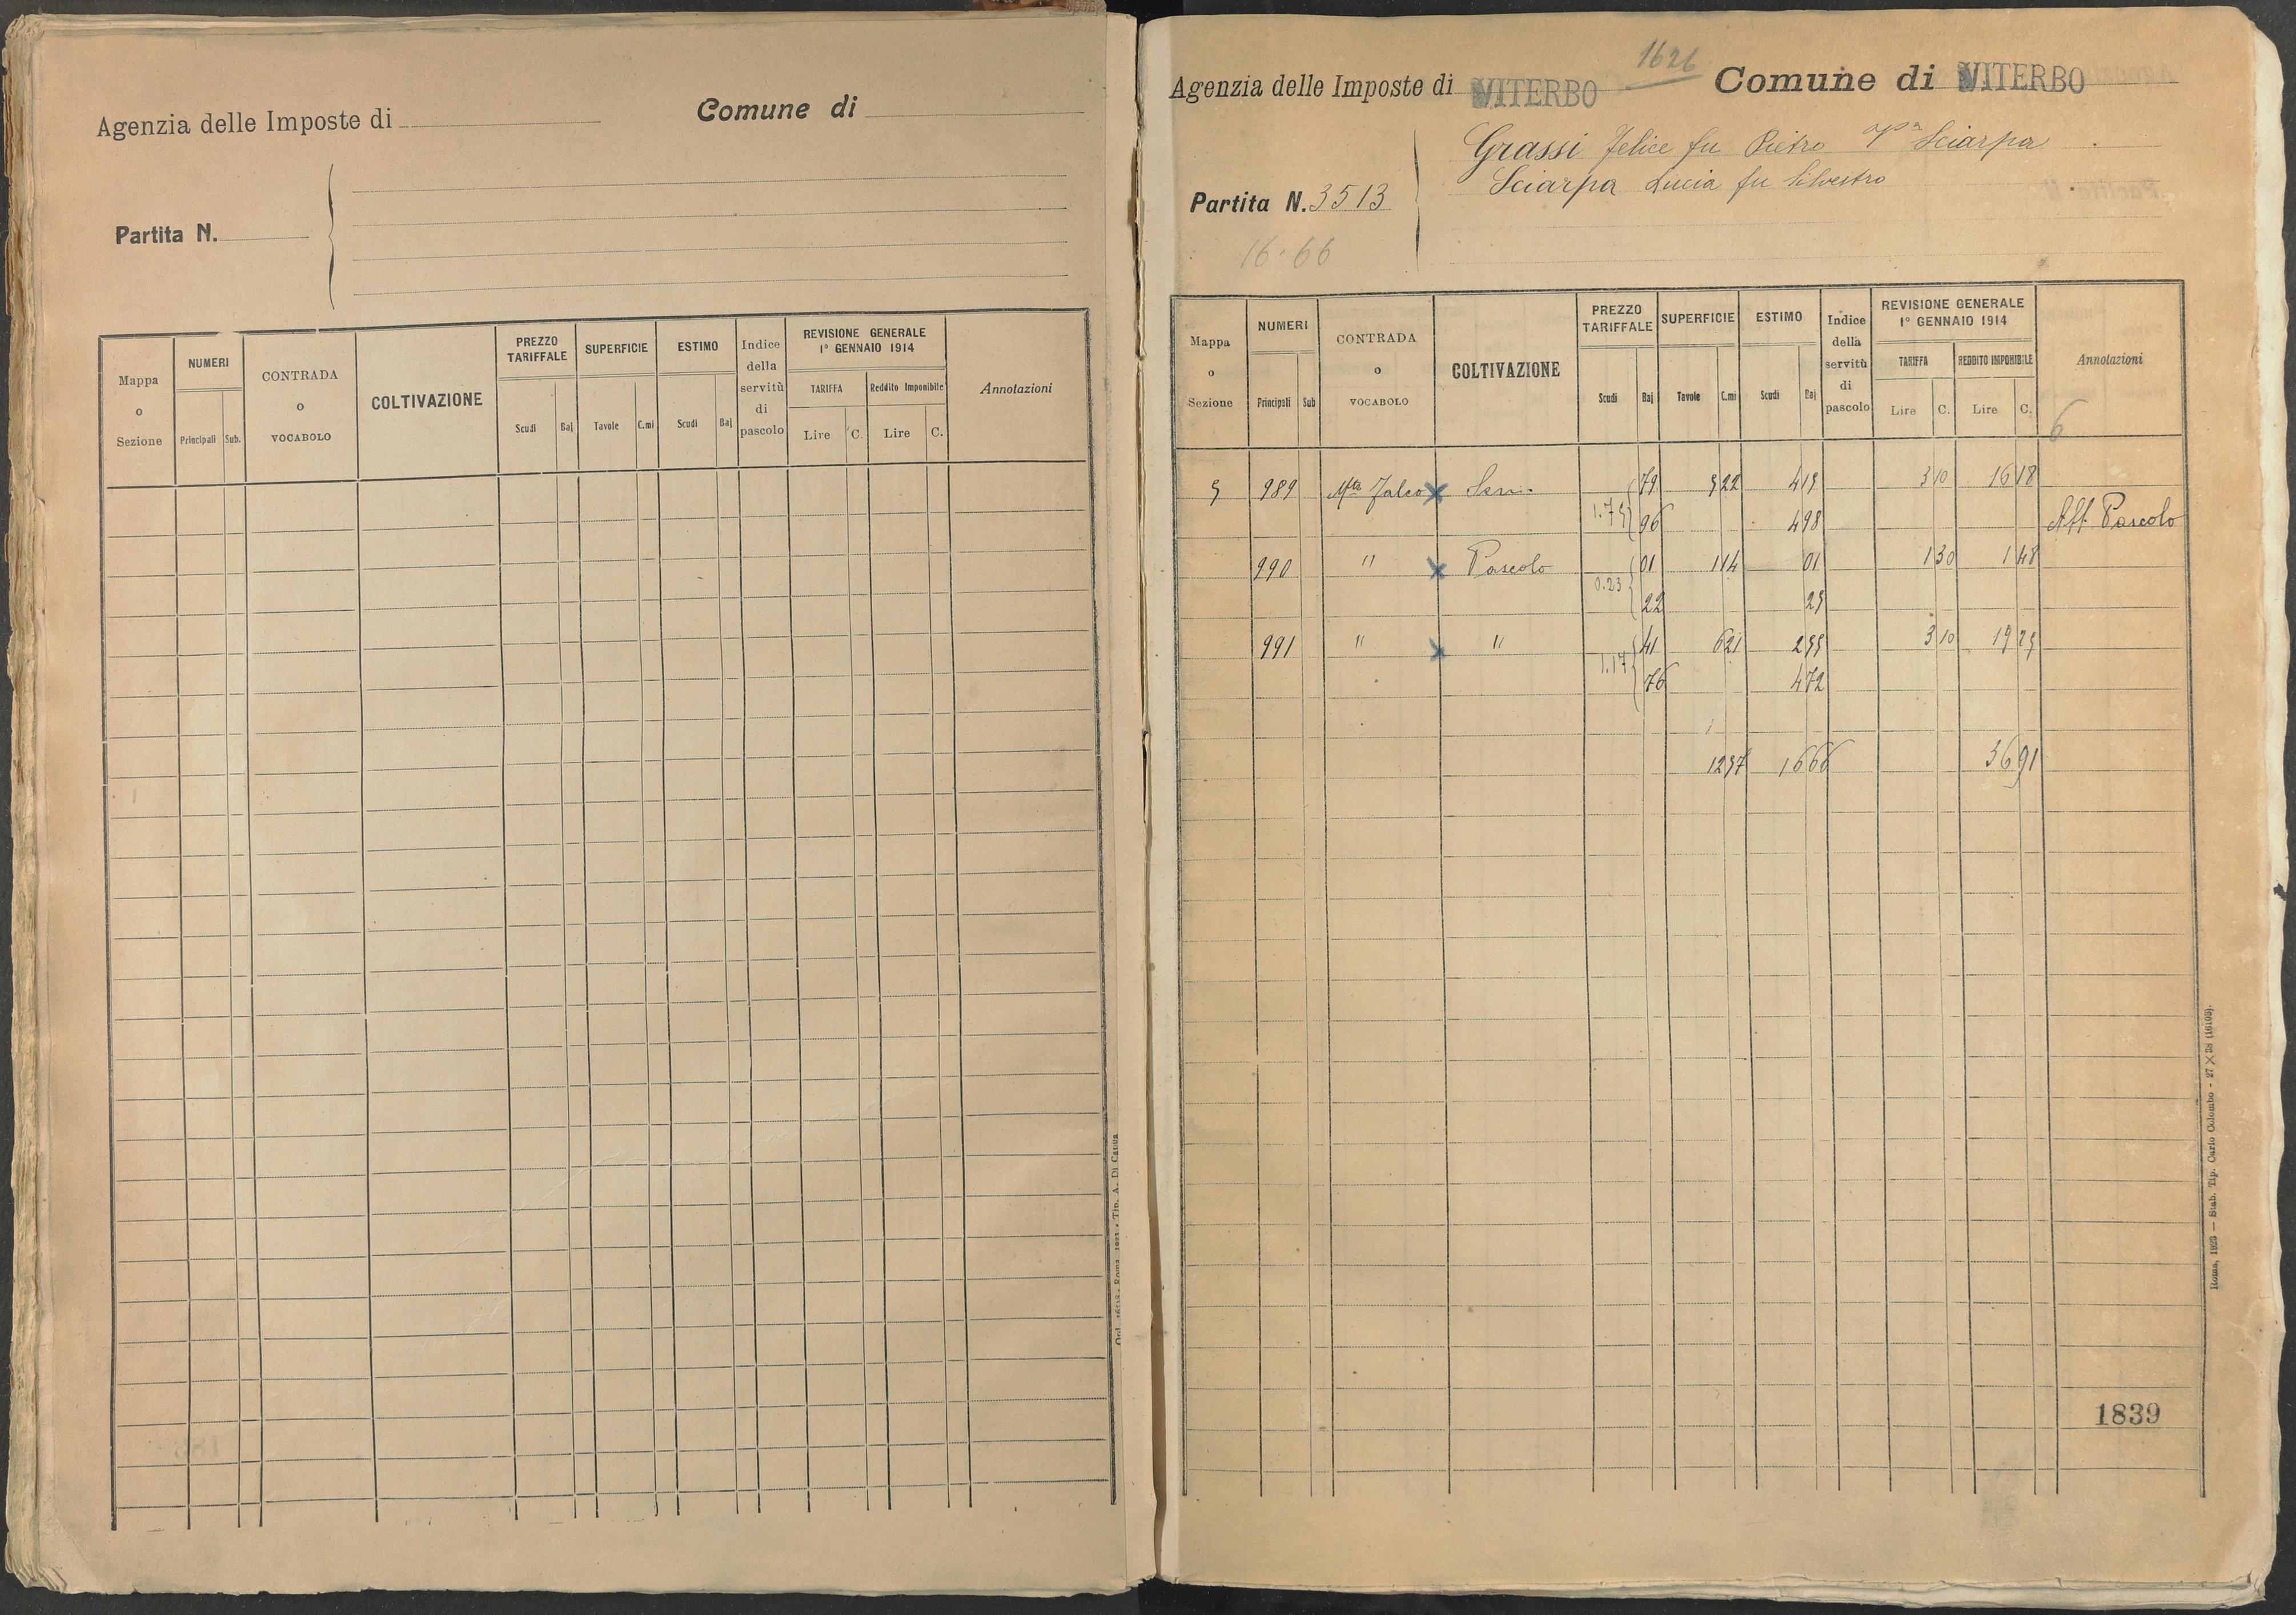 Agenzia delle Imposte di
Comune di
Partita N.
Mappa o Sezione
NUMERI
Principali
Sub.
CONTRADA o VOCABOLO
COLTIVAZIONE
PREZZO TARIFFALE
Scudi
Baj
SUPERFICIE
Tavole
C.mi
ESTIMO
Scudi
Baj
Indice della servitù di pascolo
REVISIONE GENERALE
1° GENNAIO 1914
TARIFFA
Reddito Imponibile
Lire
C.
Lire
C.
Annotazioni
1626
Agenzia delle Imposte di VITERBO
Comune di VITERBO
Grassi Felice fu Pietro Sciarpa
Sciarpa Lucia fu Silvestro
Partita N. 3513
16.66
Mappa o Sezione
NUMERI
Principali
Sub
CONTRADA o VOCABOLO
COLTIVAZIONE
PREZZO TARIFFALE
Scudi
Baj
SUPERFICIE
Tavole
C.mi
ESTIMO
Scudi
Baj
Indice della servitù di pascolo
REVISIONE GENERALE
1° GENNAIO 1914
TARIFFA
REDDITO IMPONIBILE
Lire
C.
Lire
C.
Annotazioni
6
5 989 Mte Jalco x Sem. 79 522 415 3 10 16 18
1.75 96 498 Aff. Pascolo
990 " x Pascolo 01 114 01 1 30 1 48
0.23 22 25
991 " x " 41 621 255 3 10 19 25
1.17 76 472
1257 1666 36 91
1839
Roma, 1923 — Stab. Tip. Carlo Colombo - 27 X 38